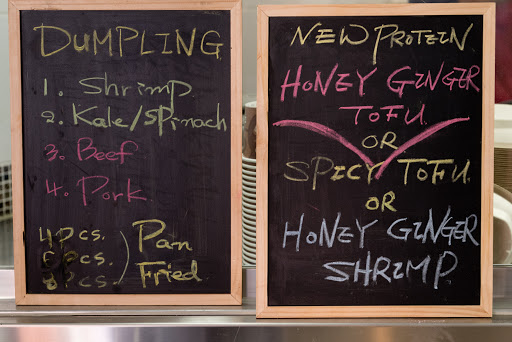 DUMPLING
1. Shrimp
2. Kale/Spinach
3. Beef
4. Pork
4 pcs.
6 pcs.
8 pcs.
Pan
Fried
NEW PROTEIN
HONEY GINGER
TOFU
OR
SPICY TOFU
OR
HONEY GINGER
SHRIMP